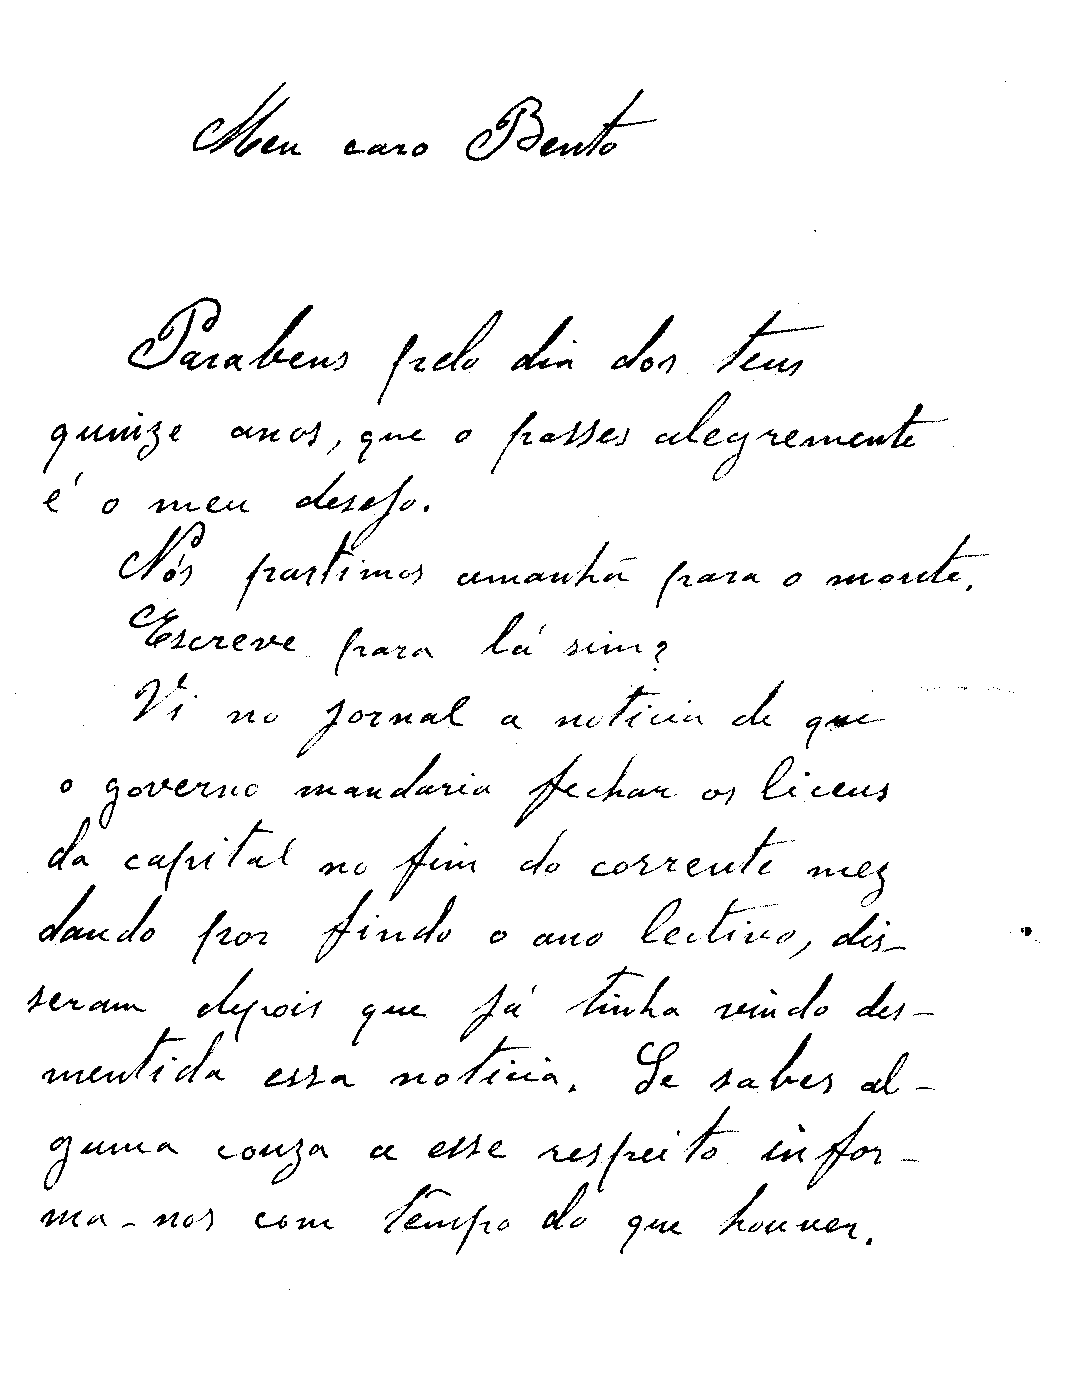 Meu caro Bento
Parabens pelo dia dos teus
quinze anos, que o passes alegremente
é o meu desejo.
Nós partimos amanhã para o monte.
Escreve para lá sim?
Vi no jornal a noticia de que
o governo mandaria fechar os liceus
da capital no fim do corrente mez
dando por findo o ano lectivo, dis-
seram depois que já tinha vindo des-
mentida essa noticia. Se sabes al-
guma couza a esse respeito infor-
ma-nos com tempo do que houver.